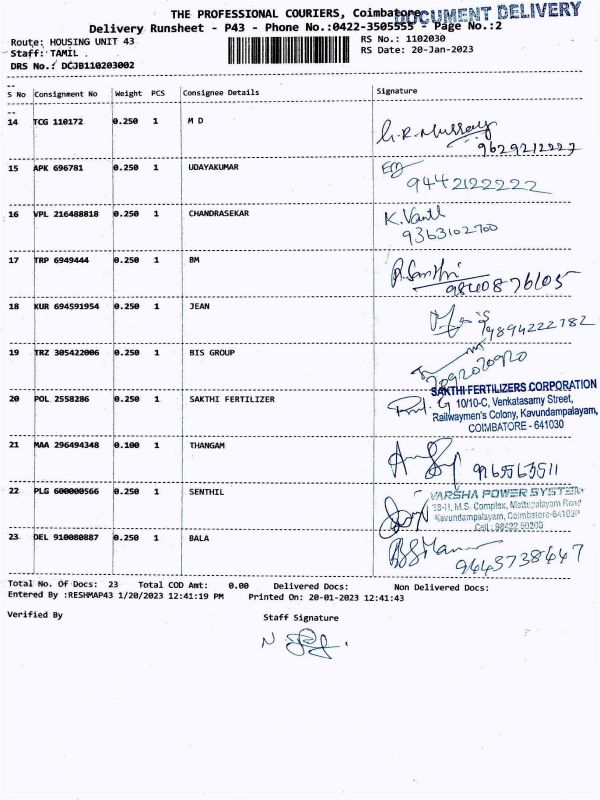 THE PROFESSIONAL COURIERS, Coimbatore
DOCUMENT DELIVERY
Delivery Runsheet - P43 - Phone No.:0422-3505555 - Page No.:2
Route: HOUSING UNIT 43
RS No.: 1102030
Staff: TAMIL .
RS Date: 20-Jan-2023
DRS No.: DCJB110203002
S No Consignment No Weight PCS Consignee Details Signature
14 TCG 110172 0.250 1 M D
G.R. Murray
9629212227
15 APK 696781 0.250 1 UDAYAKUMAR
9442122222
16 VPL 216488818 0.250 1 CHANDRASEKAR
K.
9363102700
17 TRP 6949444 0.250 1 BM
9840876105
18 KUR 694591954 0.250 1 JEAN
9894222782
19 TRZ 305422006 0.250 1 BIS GROUP
20 POL 2558286 0.250 1 SAKTHI FERTILIZER
SAKTHI FERTILIZERS CORPORATION
10/10-C, Venkatasamy Street,
Railwaymen's Colony, Kavundampalayam,
COIMBATORE - 641030
21 MAA 296494348 0.100 1 THANGAM
22 PLG 600000566 0.250 1 SENTHIL
VARSHA POWER SYSTEM
M.S. Complex, Mettupalayam Road
Kavundampalayam, Coimbatore-641030
Cell : 98422 50200
23 DEL 910080887 0.250 1 BALA
9445738447
Total No. Of Docs: 23 Total COD Amt: 0.00 Delivered Docs: Non Delivered Docs:
Entered By :RESHMAP43 1/20/2023 12:41:19 PM Printed On: 20-01-2023 12:41:43
Verified By Staff Signature